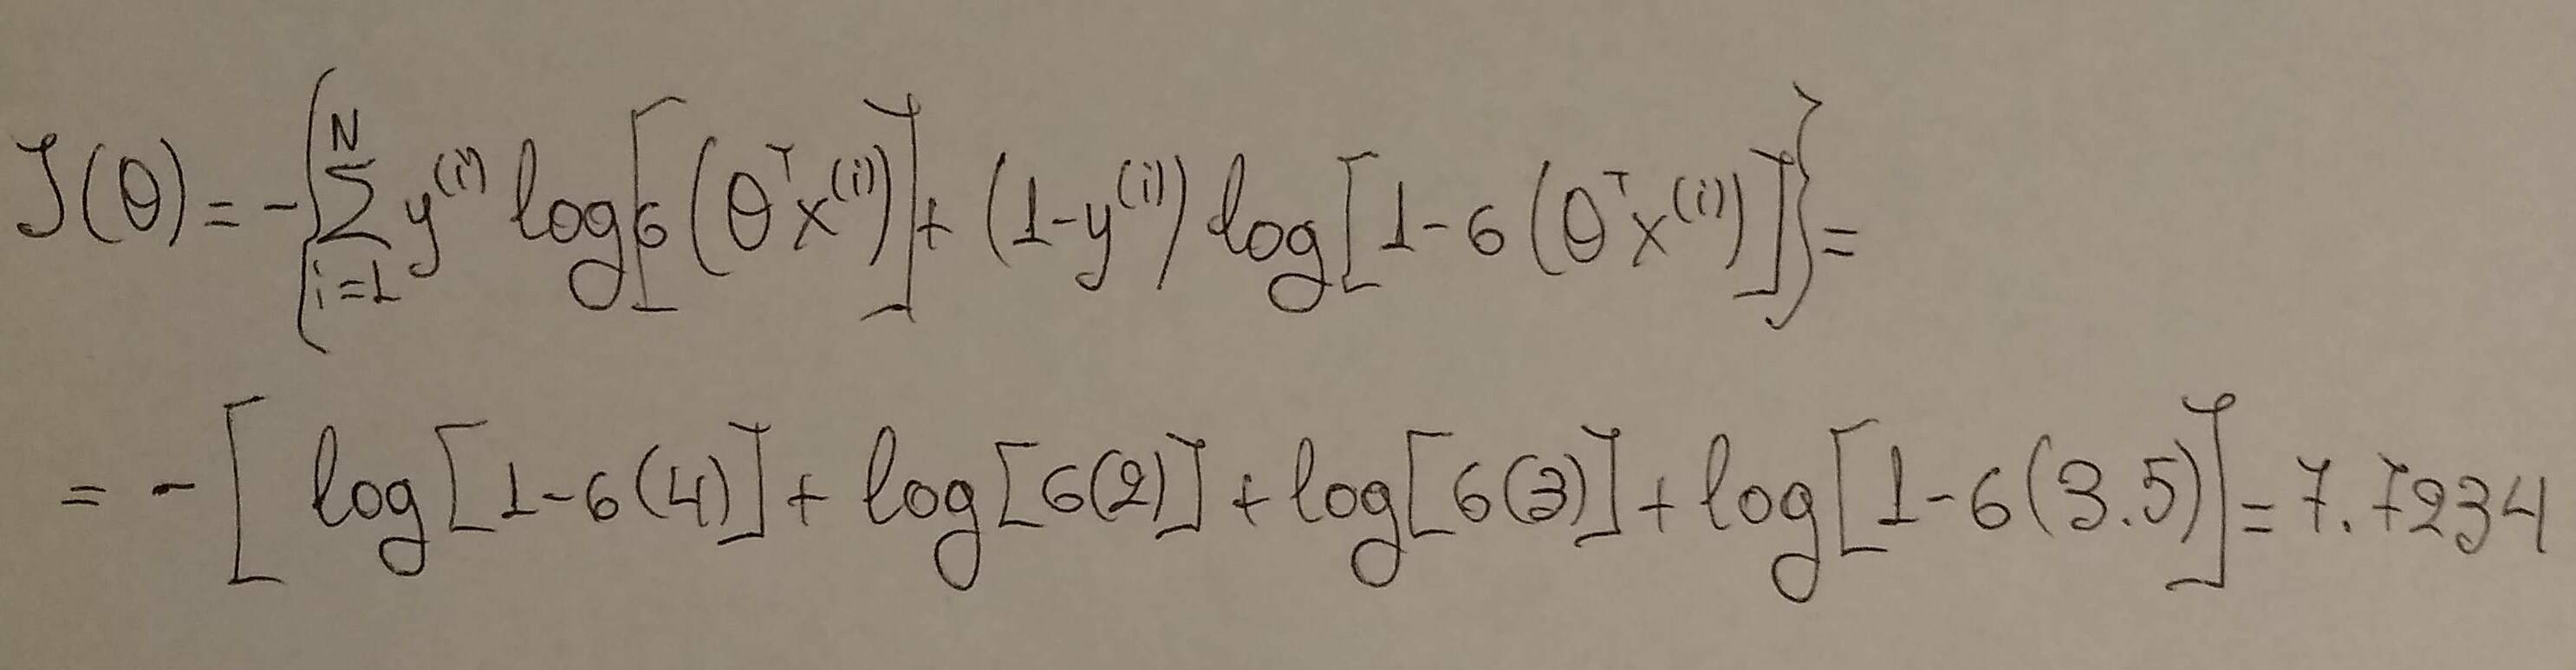 J(θ) = -{∑_{i=1}^{N} y^{(i)} log[σ(θ^T x^{(i)})] + (1-y^{(i)}) log[1-σ(θ^T x^{(i)})]} =
= -[log[1-σ(4)] + log[σ(2)] + log[σ(3)] + log[1-σ(3.5)] = 7.7234